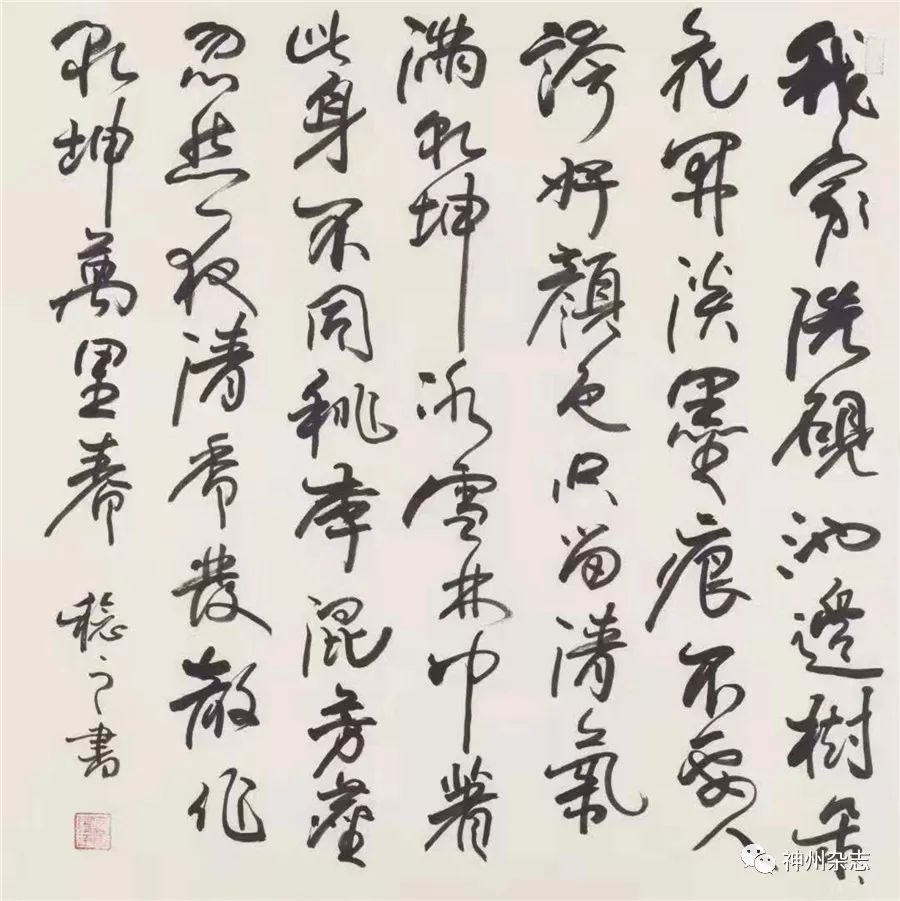 我家洗硯池邊樹朵々
花開淡墨痕不要人
誇好顏色只留清氣
滿乾坤冰雪林中著
此身不同桃李混芳塵
忽然一夜清香發散作
乾坤萬里春
之書
神州杂志